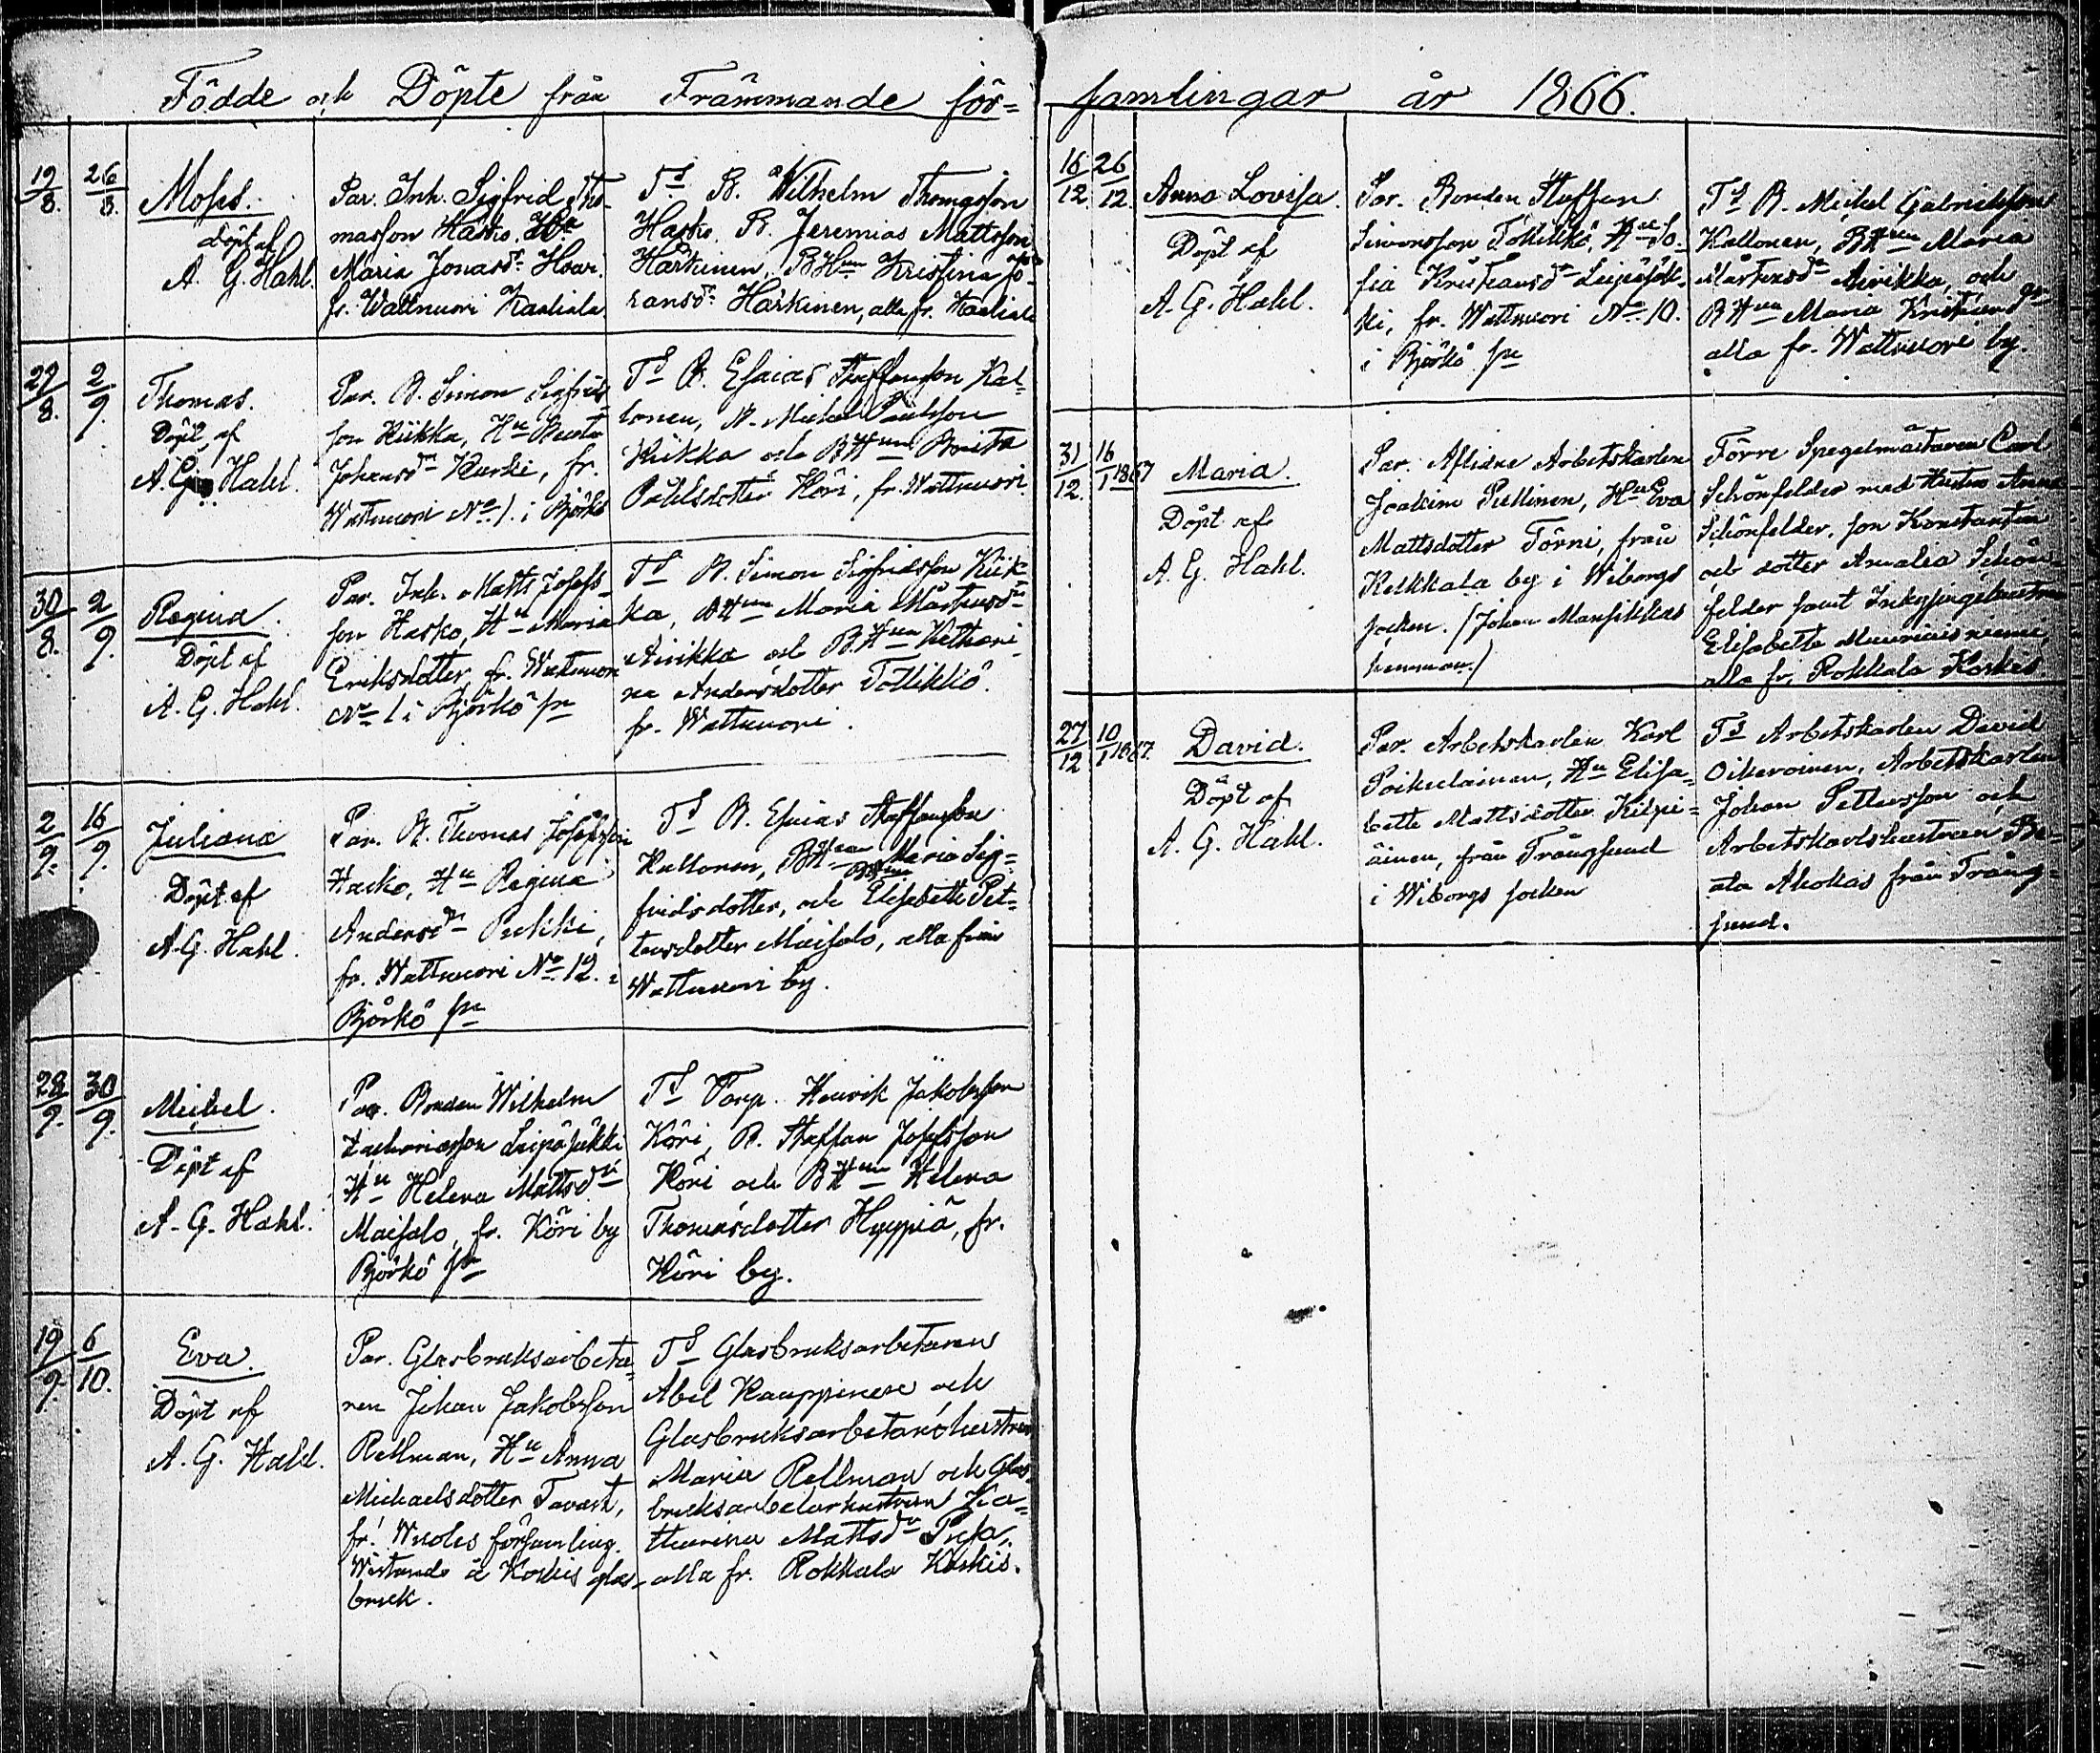 Födde och Döpte från Främmande för=
19/8. 26/8.
Moses.
döpt af
A. G. Hahl.
Par. Inh. Sigfrid Tho-
masson Hasko, Hu
Maria Jonasdr Hovi.
fr. Wattnuori Kaaliala
Ts B. Wilhelm Thomasson
Hasko, B. Jeremias Mattsson
Härkinen, BHun Kristina Jo-
hansdr Härkinen, alla fr. Kaaliala
29/8. 2/9.
Thomas.
Döpt af
A. G. Hahl.
Par. B. Simon Sigfrids
son Kiikka, Hu
Johansdr Kurki, fr.
Wattnuori No 1. i Björkö
Ts B. Esaias Staffansson Kal-
lonen, B. Mickel Paulsson
Kiikka och BHun Brita
Påhlsdotter Köri, fr. Wattnuori
30/8. 2/9.
Regina.
Döpt af
A. G. Hahl.
Par. Inh. Matts Josefs-
son Hasko, Hu Maria
Eriksdotter, fr. Wattnuori
No 1 i Björkö sn
Ts B. Simon Sigfridsson Kiik-
ka, BHun Maria Mårtensdr
Airikka och BHun Kathari-
na Andersdotter Töllikkö.
fr. Wattnuori.
2/9. 16/9.
Juliana
Döpt af
A. G. Hahl.
Par. B. Thomas Josefsson
Hasko, Hu Regina
Andersdr Pukki,
fr. Wattnuori No 12. i
Björkö sn
Ts B. Esaias Staffansson
Kallonen, BHun Maria Sig=
BHun
fridsdotter, och Elisabeth Pet=
tersdotter Maisalo, alla från
Wattnuori by.
28/9. 30/9.
Mickel.
Döpt af
A. G. Hahl.
Par. Bonden Wilhelm
Zachariasson Leipäsükki
Hu Helena Mattsdr
Maisalo, fr. Köri by
Björkö sn
Ts Torp. Henrik Jakobsson
Köri, B. Staffan Josefsson
Köri och BHun Helena
Thomasdotter Hyypiä, fr.
Köri by.
19/9. 6/10.
Eva.
Döpt af
A. G. Hahl.
Par. Glasbruksarbeta-
ren Johan Jakobsson
Rellman, Hu Anna
Michaelsdotter Tavast,
fr. Nuoles församling.
Wistande å Koskis glas-
bruk.
Ts Glasbruksarbetaren
Abel Kauppinen och
Glasbruksarbetarehustrun
Maria Rellman och Glas-
bruksarbetarhustrun Ka=
tharina Mattsdr
alla fr. Rokkala Koskis.
samlingar år 1866.
16/12. 26/12.
Anna Lovisa.
Döpt af
A. G. Hahl.
Par. Bonden Staffan
Simonsson Töllikkö, Hu So-
fia Kristiansdr Leipäsük-
ki, fr. Wattnuori No 10.
i Björkö sn
Ts B. Mickel Gabrielsson
Kallonen, BHun Maria
Mårtensdr Airikka, och
BHun Maria Kristiansdr
alla fr. Wattnuori by.
31/12. 16/1 1867
Maria.
Döpt af
A. G. Hahl.
Par. Aflidne Arbetskarlen
Joakim Pullinen, Hu Eva
Mattsdotter Törni, från
Keikkala by i Wiborgs
socken. (Johan Mansikkas
hemman.)
Förre Spegelmästaren Carl
Schönfelder med Hustru Anna
Schönfelder, son Konstantin
och dotter Amalia Schön-
felder samt
Elisabeth
alla fr. Rokkala Koskis
27/12 10/1 1867.
David.
Döpt af
A. G. Hahl.
Par. Arbetskarlen Karl
Poikelainen, Hu Elisa=
beth Mattsdotter Kilpi=
äinen, från Trångsund
i Wiborgs socken
Ts Arbetskarlen David
Oikarainen, Arbetskarlen
Johan Pettersson och
Arbetskarlshustrun Be-
ata Ahokas från Trång=
sund.